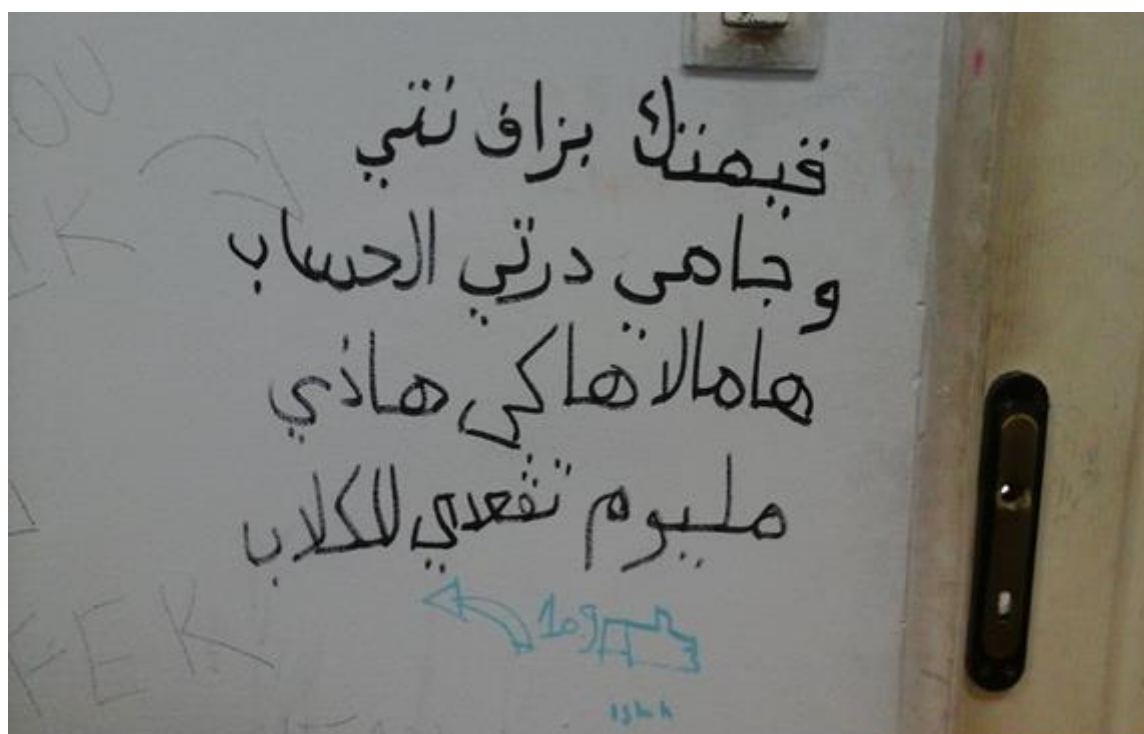 OU
IK
قيمتك بزاف نتي
و جامي درتي الحساب
هامالا هاكي هاذي
مليوم تقعدي للكلاب
109
FEK